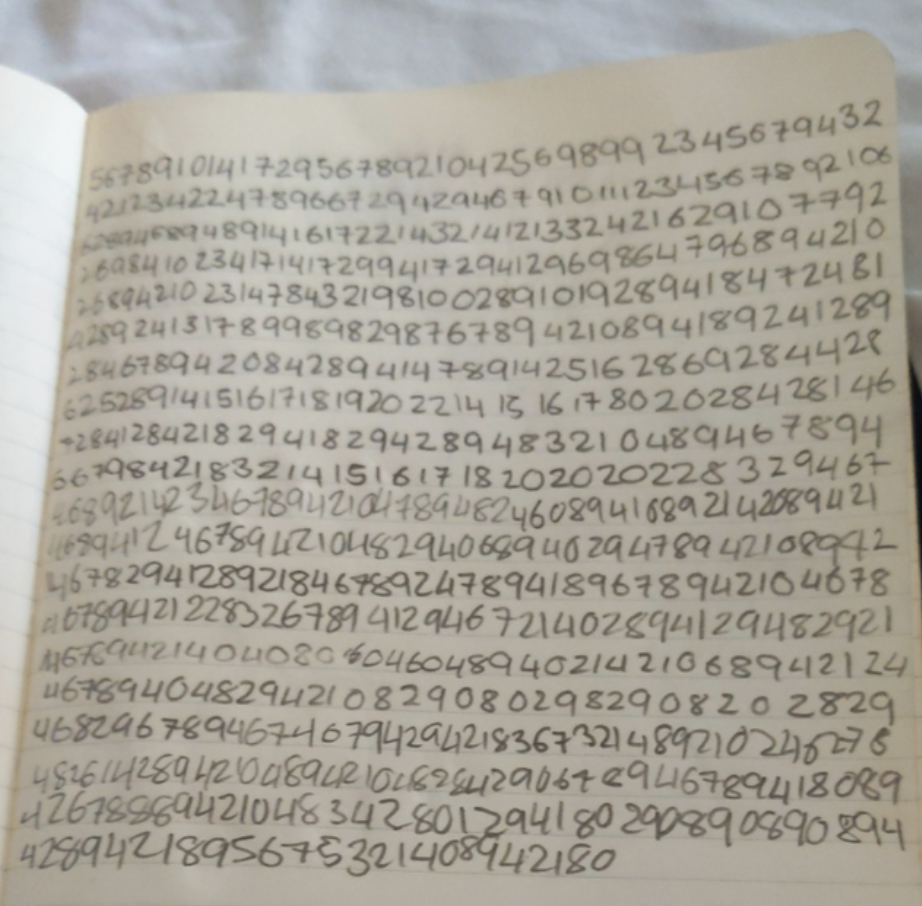 567891014172956789210425698999 2345679432
421234224789667294294679101112345678 92106
6289468948914161722143214121332421629107792
26984102341714172994172941296986479689 4210
26894210231478432198100289101928941847 2481
4289241317899898298767894210894189241289
284678942084289414789142516286928442 8
6252891415161718192022141516178020284281 46
42841284218294182942894832104894678 94
56798421832141516171820202022832946 7
468921423467894210478948246089416892142089421
468941246789421048294068940294789421089 42
4678294128921846789247894189678942104678
467894212283267894129467214028941294829 21
4467894214040808604604894021421068942124
46789404829421082908029829082028 29
46829678946746794294218367321489210246278
4826142894210489421048284290672946789418089
426788894210483428012941802908908908 94
428942189567532140894 2180